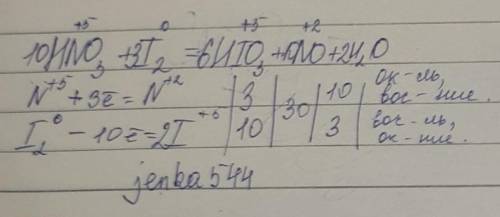 +5 0 +5 +2
10HNO3 + 3I2 = 6HIO3 + 10NO + 2H2O
N+5 + 3ē = N+2 | 3 | 30 | 10 | ок-ль, вос-ние.
I2 0 - 10ē = 2I+5 | 10 | 3 | вос-ль, ок-ние.
jenka544